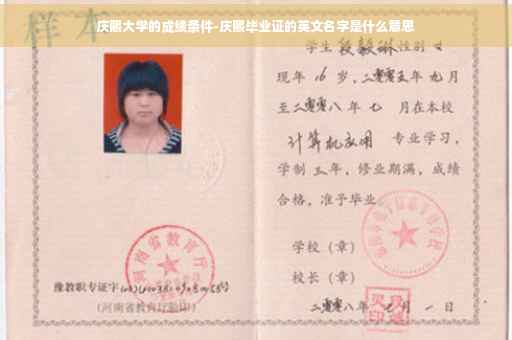 庆熙大学的成绩条件-庆熙毕业证的英文名字是什么意思
样本
学生段毅琳性别女
现年16岁，二零零五年九月
至二零零八年七月在本校
计算机应用 专业学习，
学制三年，修业期满，成绩
合格，准予毕业。
学校（章）
校长（章）
二零零八年七月一日
河南省教育厅
豫教职专证字
（河南省教育厅验印）